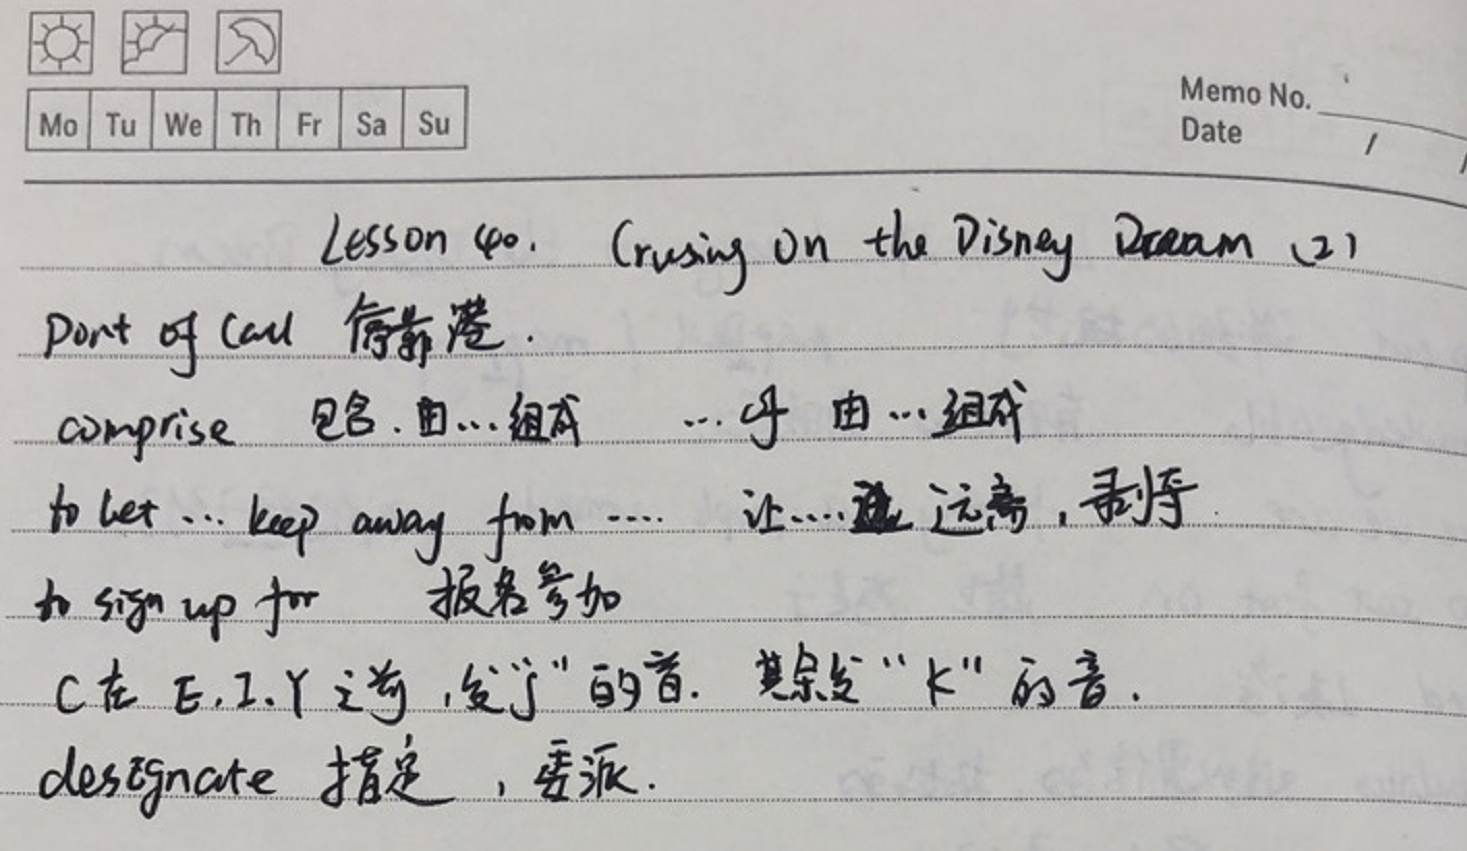 Mo Tu We Th Fr Sa Su
Memo No.
Date / /
Lesson 40. Crusing on the Disney Dream (2)
Port of Call 停靠港.
comprise 包含.由...组成 ...of 由...组成
to let ... keep away from .... 让.... 远离,
to sign up for 报名参加
C在 E.I.Y 之前,发"j"的音. 其余发"K"的音.
designate 指定,委派.